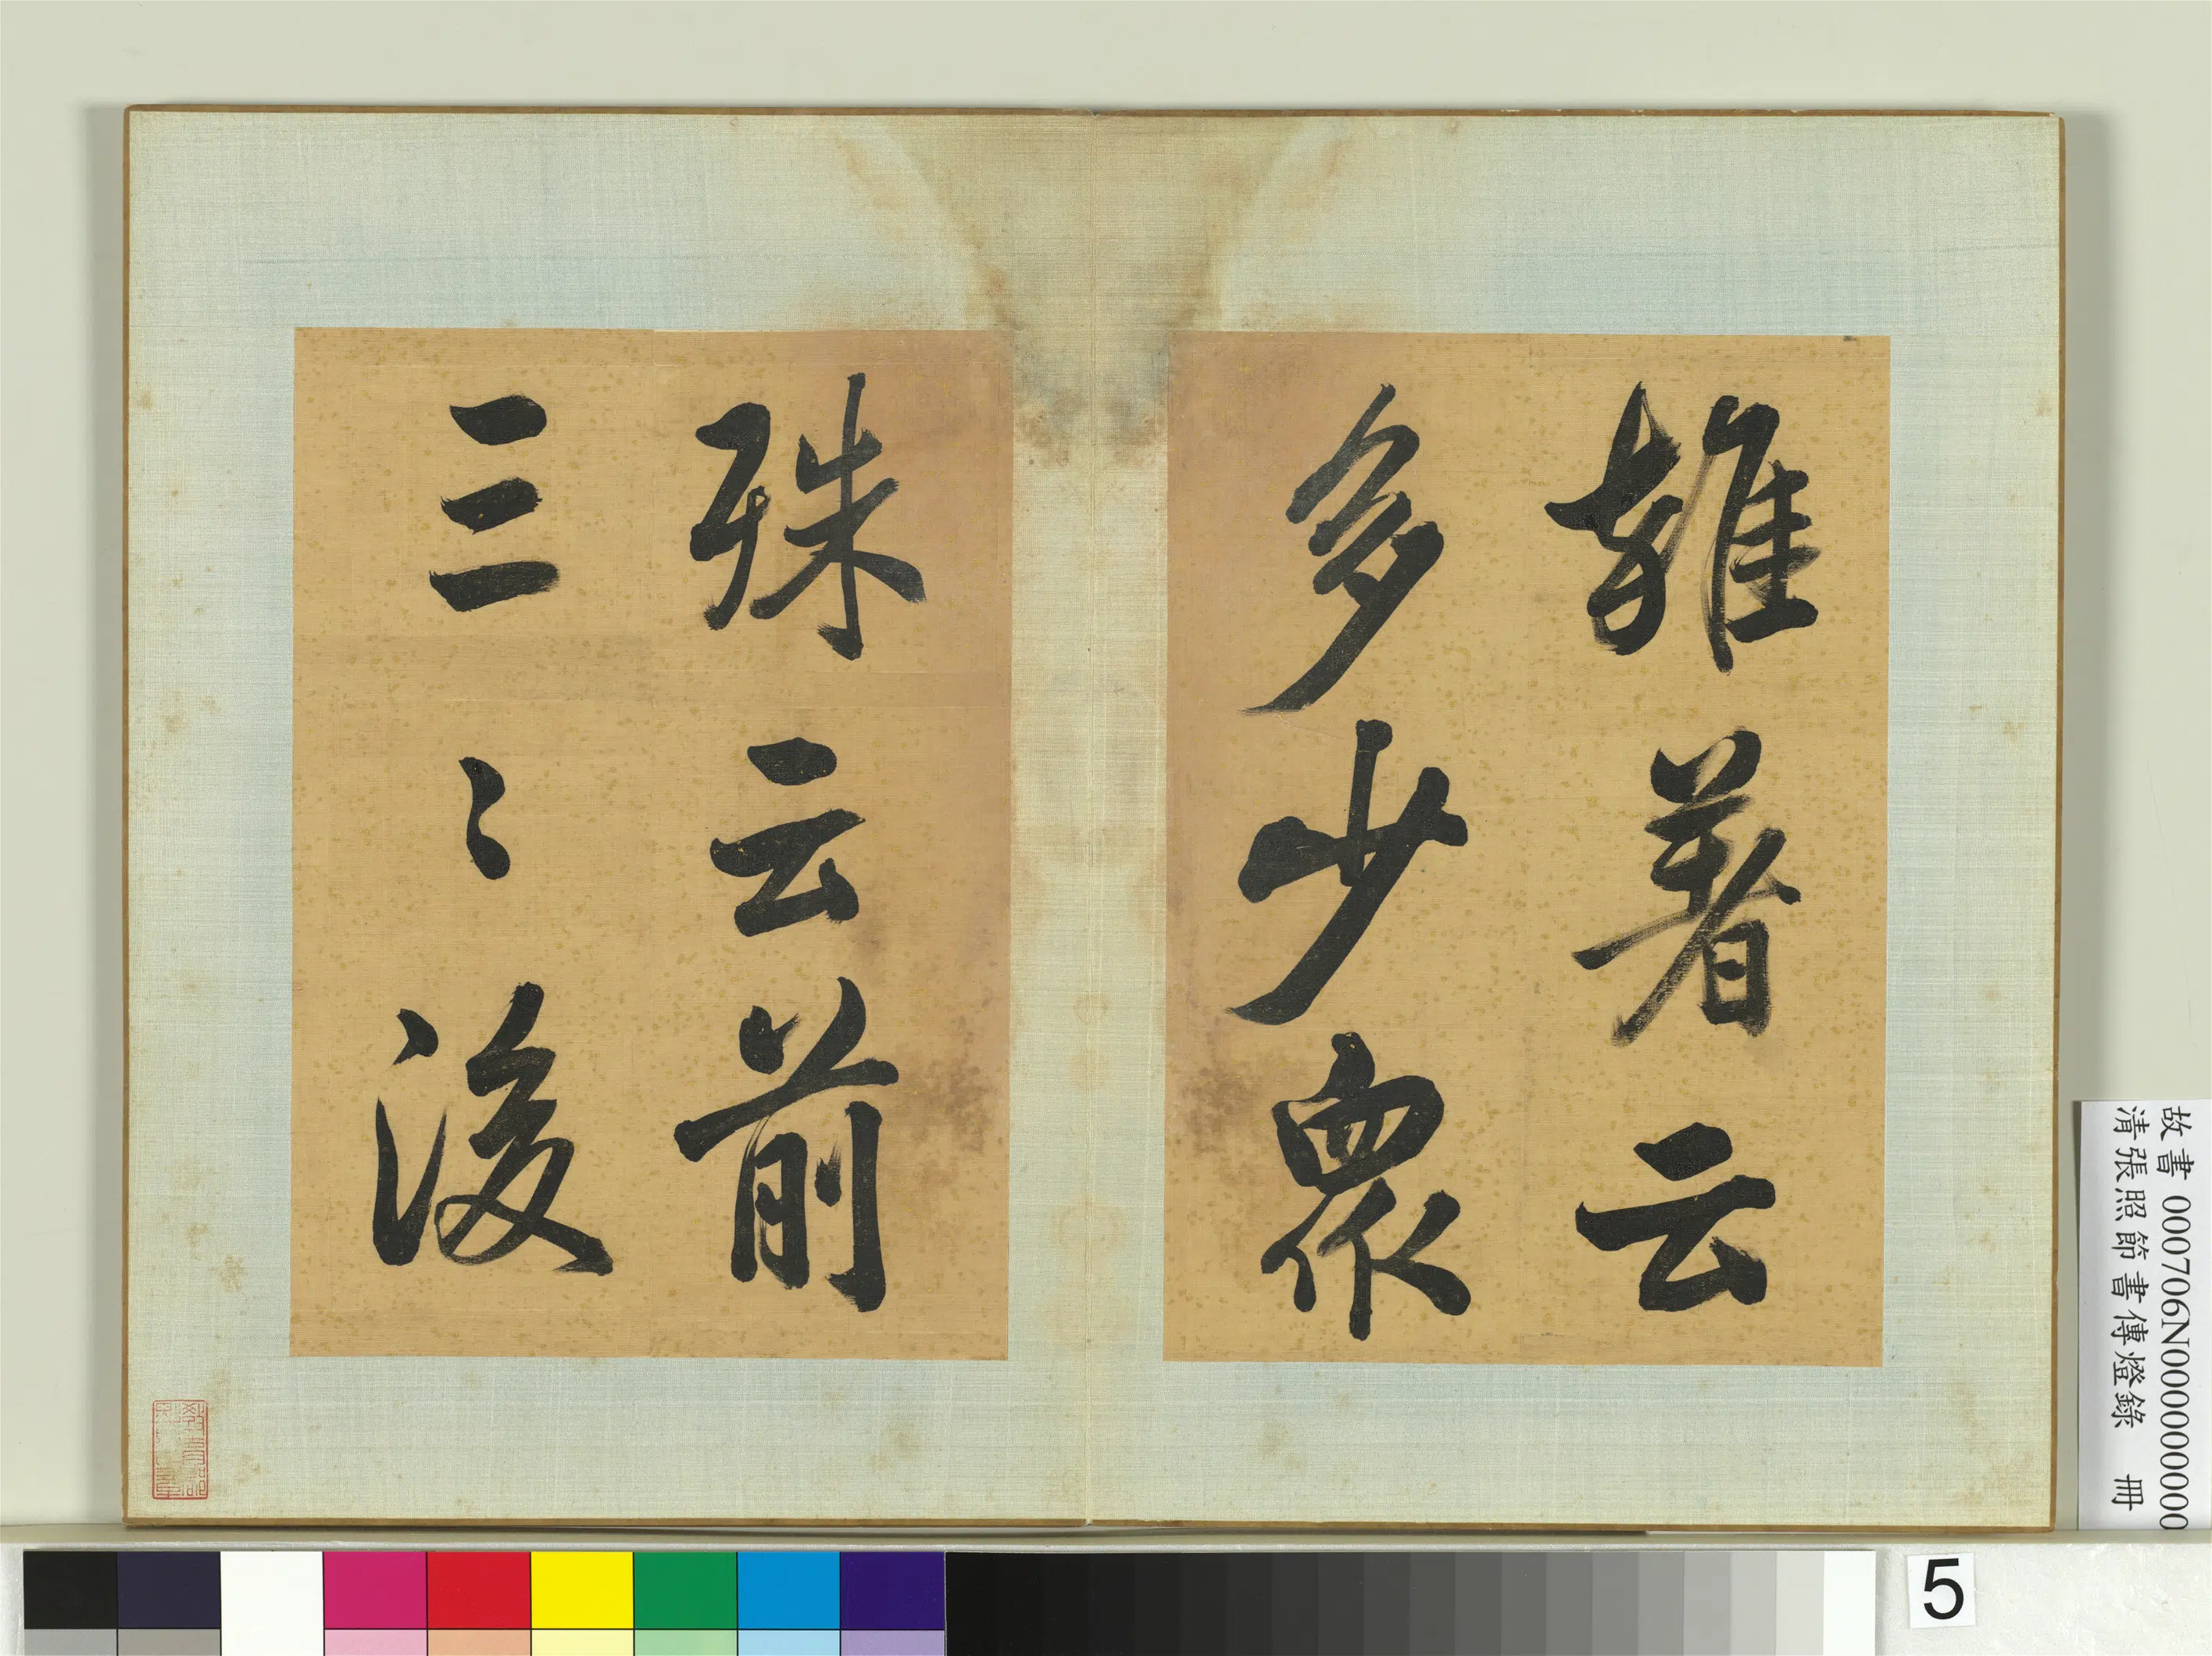 雜著云
多少眾
殊云前
三〻後
故書 000706N000000000
清張照節書傳燈錄 冊
5